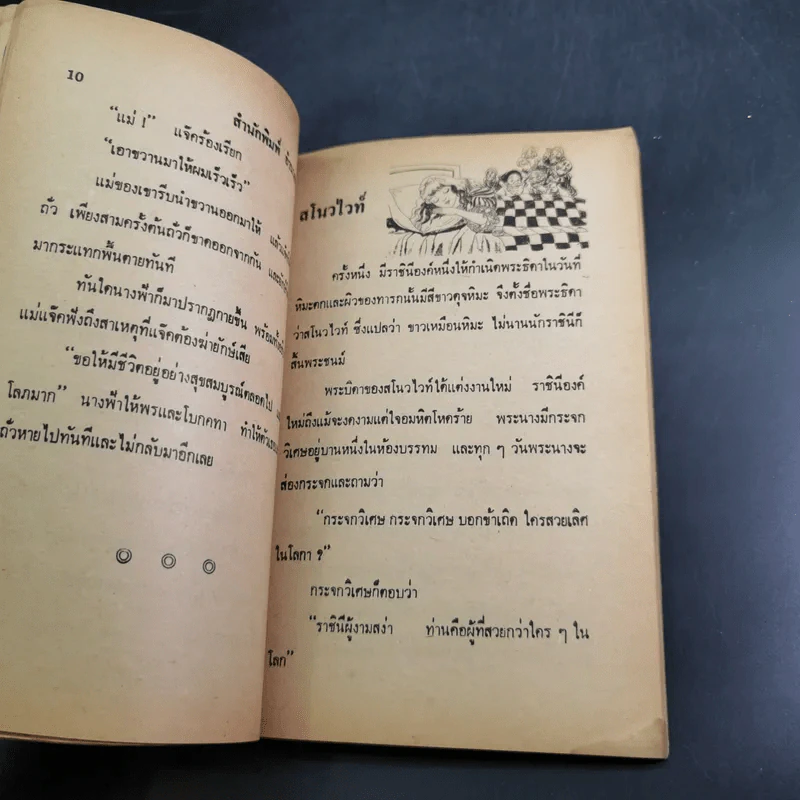 10
สำนักพิมพ์
“แม่ !” แจ๊คร้องเรียก
“เอาขวานมาให้ผมเร็วเร็ว”
แม่ของเขารีบนำขวานออกมาให้
ถั่ว เพียงสามครั้งต้นถั่วก็ขาดออกจากกัน
มากระแทกพื้นตายทันที
ทันใดนางฟ้าก็มาปรากฏกายขึ้น
แม่แจ๊คฟังถึงสาเหตุที่แจ๊คต้องฆ่ายักษ์เสีย
“ขอให้มีชีวิตอยู่อย่างสุขสมบูรณ์ตลอดไป
โลภมาก” นางฟ้าให้พรและโบกคทา
ถั่วหายไปทันทีและไม่กลับมาอีกเลย
สโนวไวท์
ครั้งหนึ่ง มีราชินีองค์หนึ่งให้กำเนิดพระธิดาในวันที่
หิมะตกและผิวของทารกนั้นมีสีขาวดุจหิมะ จึงตั้งชื่อพระธิดา
ว่าสโนวไวท์ ซึ่งแปลว่า ขาวเหมือนหิมะ ไม่นานนักราชินีก็
สิ้นพระชนม์
พระบิดาของสโนวไวท์ได้แต่งงานใหม่ ราชินีองค์
ใหม่ถึงแม้จะงดงามแต่ใจอมหิตโหดร้าย พระนางมีกระจก
วิเศษอยู่บานหนึ่งในห้องบรรทม และทุก ๆ วันพระนางจะ
ส่องกระจกและถามว่า
“กระจกวิเศษ กระจกวิเศษ บอกข้าเถิด ใครสวยเลิศ
ในโลกา ?”
กระจกวิเศษก็ตอบว่า
“ราชินีผู้งามสง่า ท่านคือผู้ที่สวยกว่าใคร ๆ ใน
โลก”